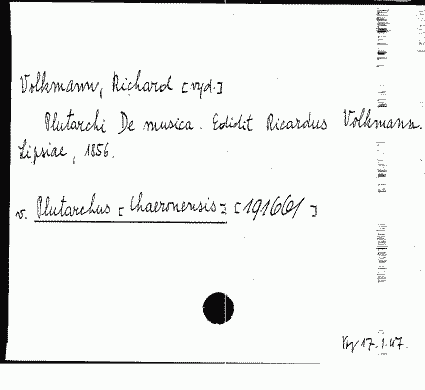 Volkmann, Richard [vyd.]
Plutarchi De musica. Edidit Ricardus Volkmann.
Lipsiae, 1856.
v. Plutarchus [Chaeronensis] [191661]
17.1.47.